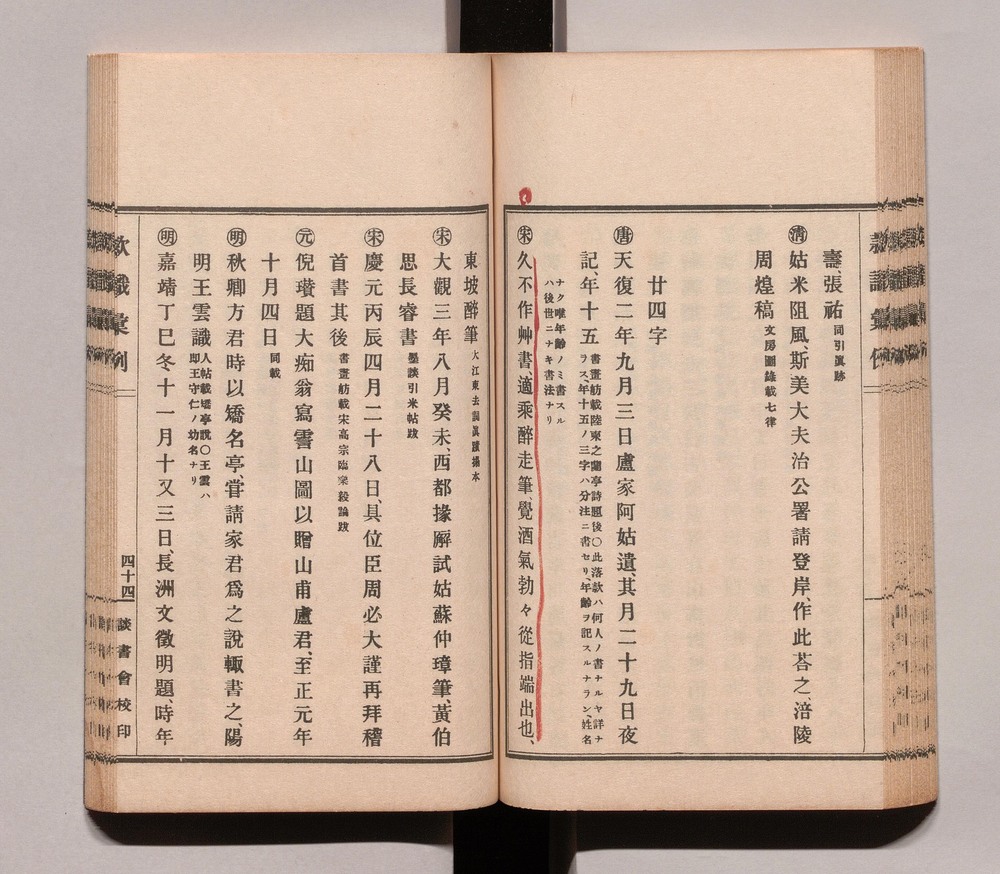 壽、張祐 同引眞跡
㊄清 姑米阻風、斯美大夫治公署請登岸、作此荅之、涪陵
周煌稿 文房圖錄載七律
廿四字
唐 天復二年九月三日盧家阿姑遺、其月二十九日夜
記、年十五 書畫舫載陸柬之蘭亭詩題後〇此落款ハ何人ノ書ナルヤ詳ナ
ラス、年十五ノ三字ハ分注ニ書セリ、年齡ヲ記スルナラン、姓名
ナク唯年齡ノミ書スル
ハ後世ニナキ書法ナリ
宋 久不作艸書、適乘醉走筆、覺酒氣勃々從指端出也、
東坡醉筆 大江東去詞眞蹟搨本
宋 大觀三年八月癸未、西都掾廨試姑蘇仲璋筆、黃伯
思長睿書 墨談引米帖跋
宋 慶元丙辰四月二十八日、具位臣周必大謹再拜稽
首書其後 書畫舫載宋高宗臨樂毅論跋
元 倪瓚題大痴翁寫霅山圖以贈山甫盧君、至正元年
十月四日 同載
明 秋卿方君時以矯名亭、甞請家君爲之說、輙書之、陽
明王雲識 人帖載矯亭說〇王雲ハ
即王守仁ノ幼名ナリ
明 嘉靖丁巳冬十一月十又三日、長洲文徵明題、時年
款識彙例
四十四
談書會校印